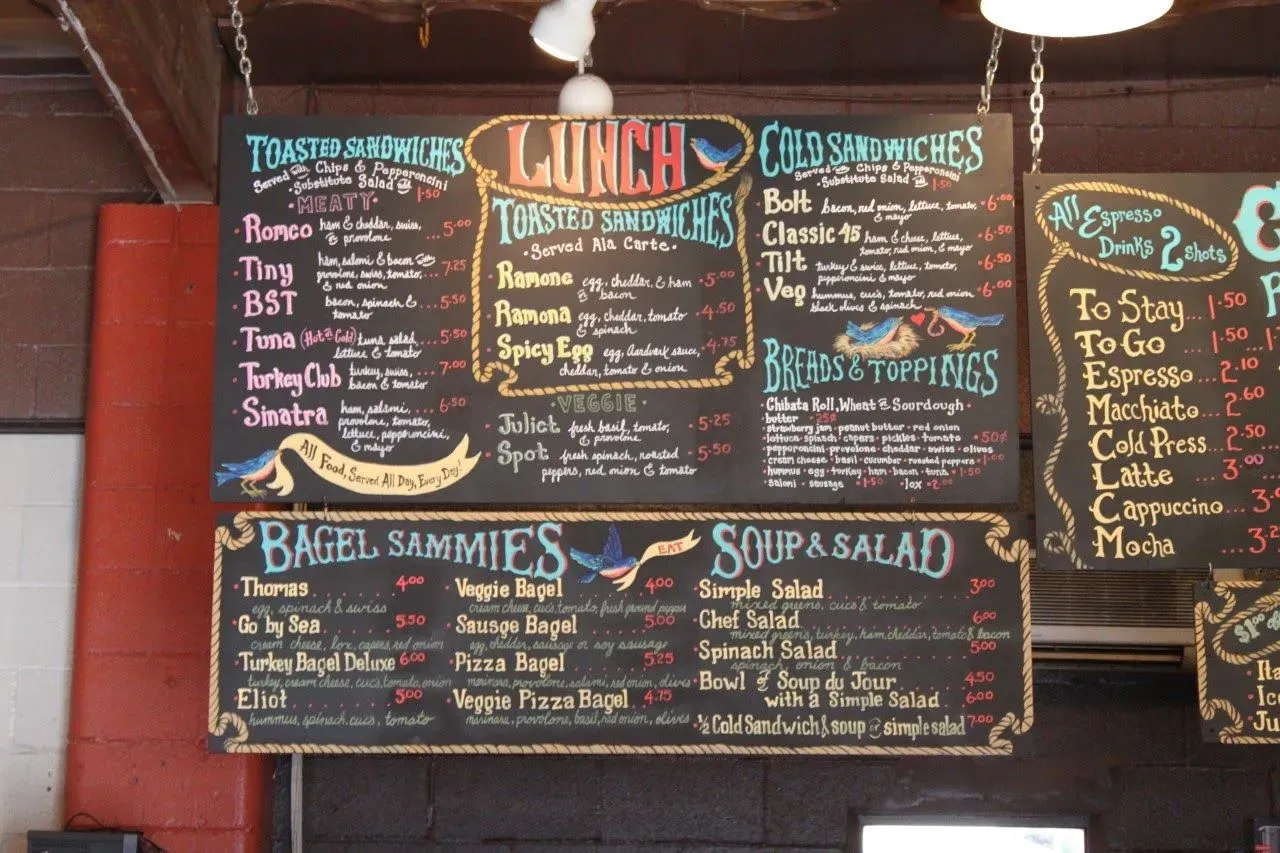 LUNCH
TOASTED SANDWICHES
Served with Chips & Pepperoncini
• Substitute Salad add 1.50
• MEATY •
• Romeo ham & cheddar, swiss, ... 5.00
or provolone
• Tiny ham, salami & bacon with
provolone, swiss, tomato, ... 7.25
& red onion
• BST bacon, spinach & .... 5.50
tomato
• Tuna (Hot or Cold) tuna salad, 5.50
lettuce & tomato
• Turkey Club turkey, swiss, ... 7.00
bacon & tomato
• Sinatra ham, salami, ... 6.50
provolone, tomato,
lettuce, pepperoncini,
& mayo
All Food, Served All Day, Every Day!
TOASTED SANDWICHES
• Served Ala Carte •
• Ramone egg, cheddar, & ham • 5.00
or bacon
• Ramona egg, cheddar, tomato • 4.50
& spinach
• Spicy Egg egg, Aardvark sauce, • 4.75
cheddar, tomato & onion
• VEGGIE •
• Juliet fresh basil, tomato, • 5.25
& provolone
• Spot fresh spinach, roasted • 5.50
peppers, red onion & tomato
COLD SANDWICHES
Served with Chips & Pepperoncini
• Substitute Salad add 1.50
• Bolt bacon, red onion, lettuce, tomato, • 6.00
& mayo
• Classic 45 ham & cheese, lettuce, • 6.50
tomato, red onion, & mayo
• Tilt turkey & swiss, lettuce, tomato, • 6.50
pepperoncini & mayo
• Veg hummus, cuc's, tomato, red onion • 6.00
black olives & spinach
BREADS & TOPPINGS
• Chibata Roll, Wheat or Sourdough •
butter • 25¢
strawberry jam • peanut butter • red onion
lettuce • spinach • capers • pickles • tomato • 50¢
pepperoncini • provolone • cheddar • swiss • olives
cream cheese • basil • cucumber • roasted peppers • 1.00
hummus • egg • turkey • ham • bacon • tuna • 1.50
salami • sausage • 1.50 • lox • 2.00
All Espresso
Drinks 2 Shots
To Stay... 1.50
To Go ... 1.50
Espresso ... 2.10
Macchiato .. 2.60
Cold Press.. 2.50
Latte ... 3.00
Cappuccino...
Mocha
BAGEL SAMMIES
• Thomas 4.00
egg, spinach & swiss
• Go by Sea 5.50
cream cheese, lox, capers, red onion
• Turkey Bagel Deluxe 6.00
turkey, cream cheese, cuc's, tomato, onion
• Eliot 5.00
hummus, spinach, cuc's, tomato
EAT
• Veggie Bagel 4.00
cream cheese, cuc's, tomato, fresh ground pepper
• Sausge Bagel 5.00
egg, cheddar, sausage or soy sausage
• Pizza Bagel 5.25
marinara, provolone, salami, red onion, olives
• Veggie Pizza Bagel 4.75
marinara, provolone, basil, red onion, olives
SOUP & SALAD
• Simple Salad 3.00
mixed greens, cucs & tomato
• Chef Salad 6.00
mixed greens, turkey, ham, cheddar, tomato & bacon
• Spinach Salad 5.00
spinach, onion & bacon
• Bowl of Soup du Jour 4.50
with a Simple Salad 6.00
• ½ Cold Sandwich & soup or simple salad 7.00
$1.00